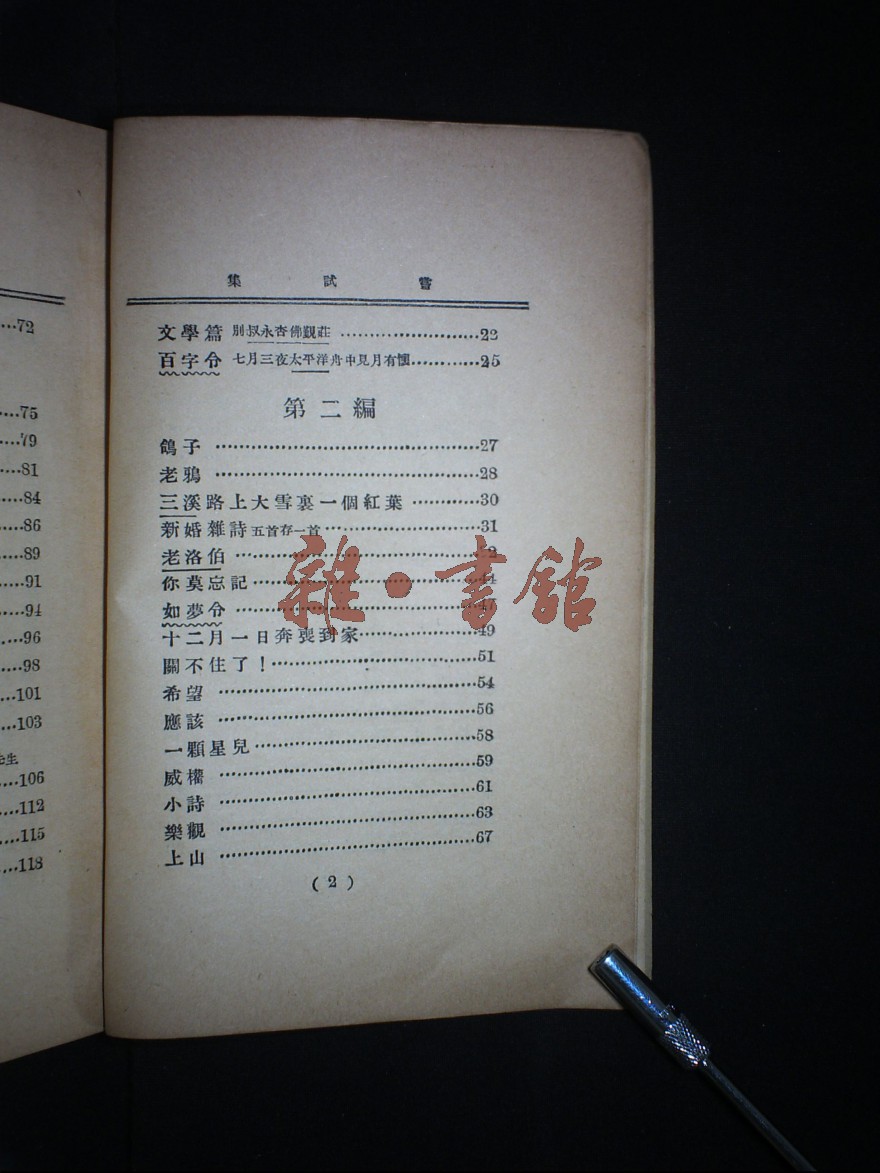 集 試 嘗
文學篇 別叔永杏佛覲莊 ………………22
百字令 七月三夜太平洋舟中見月有懷…………25
第二編
鴿子 ………………27
老鴉 ………………28
三溪路上大雪裏一個紅葉 …………30
新婚雜詩 五首存一首………………31
老洛伯 ………………
你莫忘記………………44
如夢令 ………………47
十二月一日奔喪到家………………49
關不住了!………………51
希望 ………………54
應該 ………………56
一顆星兒………………58
威權 ………………59
小詩 ………………61
樂觀 ………………63
上山 ………………67
(2)
雜·書館
…72
…75
…79
…81
…84
…86
…89
…91
…94
…96
…98
…101
…103
先生
…106
…112
…115
…118